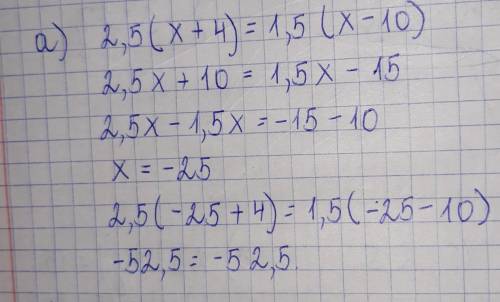 а) 2,5(x+4)=1,5(x-10)
2,5x+10=1,5x-15
2,5x-1,5x=-15-10
x=-25
2,5(-25+4)=1,5(-25-10)
-52,5=-52,5.